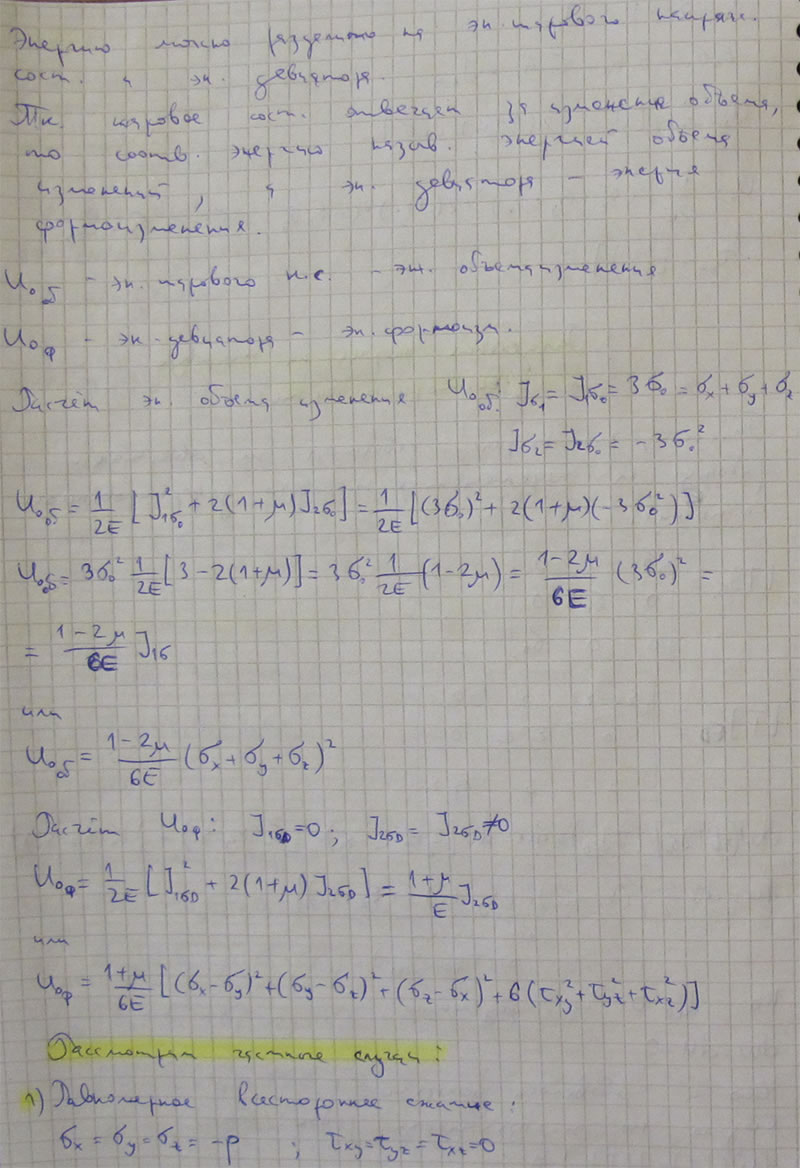 Энергию можно разделить на эн. шарового напряж.
сост. и эн. девиатора.
Т.к. шаровое сост. отвечает за изменение объёма,
то соотв. энергию назыв. энергией объема
изменений, а эн. девиатора – энергия
формоизменения.
U₀об – эн. шарового н.с. – эн. объемаизменения
U₀ф – эн. девиатора – эн. формоизм.
Расчёт эн. объема изменения U₀об: J₁σ = J₁σ₀ = 3σ₀ = σx + σy + σz
J₂σ = J₂σ₀ = -3σ₀²
U₀об = 1/2E [J₁σ₀² + 2(1+μ)J₂σ₀] = 1/2E [(3σ₀)² + 2(1+μ)(-3σ₀²)]
U₀об = 3σ₀² 1/2E [3 - 2(1+μ)] = 3σ₀² 1/2E (1-2μ) = 1-2μ/6E (3σ₀)² =
= 1-2μ/6E J₁σ
или
U₀об = 1-2μ/6E (σx + σy + σz)²
Расчёт U₀ф: J₁σD = 0; J₂σD = J₂σD ≠ 0
U₀ф = 1/2E [J₁σD² + 2(1+μ)J₂σD] = 1+μ/E J₂σD
или
U₀ф = 1+μ/6E [(σx - σy)² + (σy - σz)² + (σz - σx)² + 6(τxy² + τyz² + τxz²)]
Рассмотрим частные случаи:
1) Равномерное всестороннее сжатие:
σx = σy = σz = -p ; τxy = τyz = τxz = 0